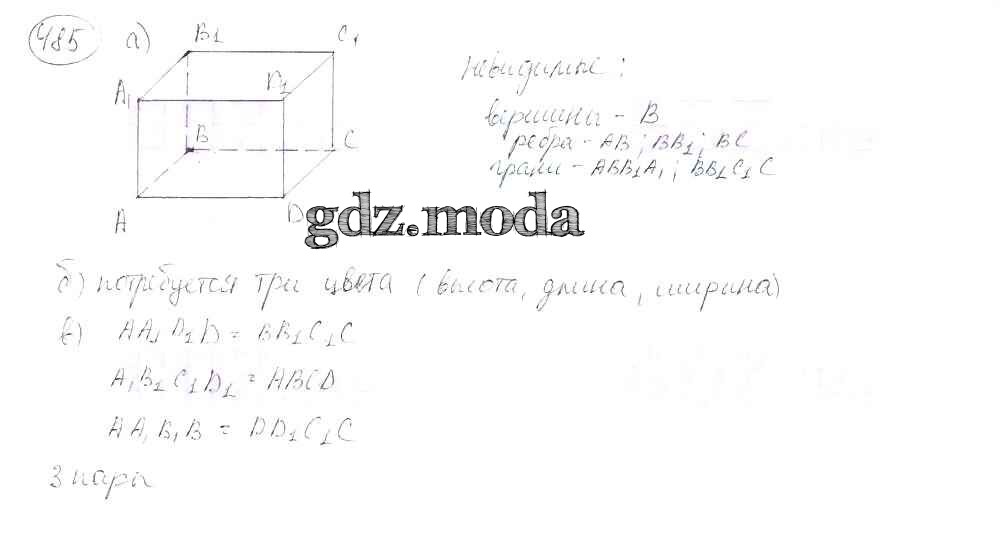 485 а) B1 C1
A1 D1
B C
A D
Невидимые:
вершины - B
ребра - AB; BB1; BC
грани - ABB1A1; BB1C1C
gdz.moda
б) потребуется три цвета (высота, длина, ширина)
в) AA1D1D = BB1C1C
A1B1C1D1 = ABCD
AA1B1B = DD1C1C
3 пары